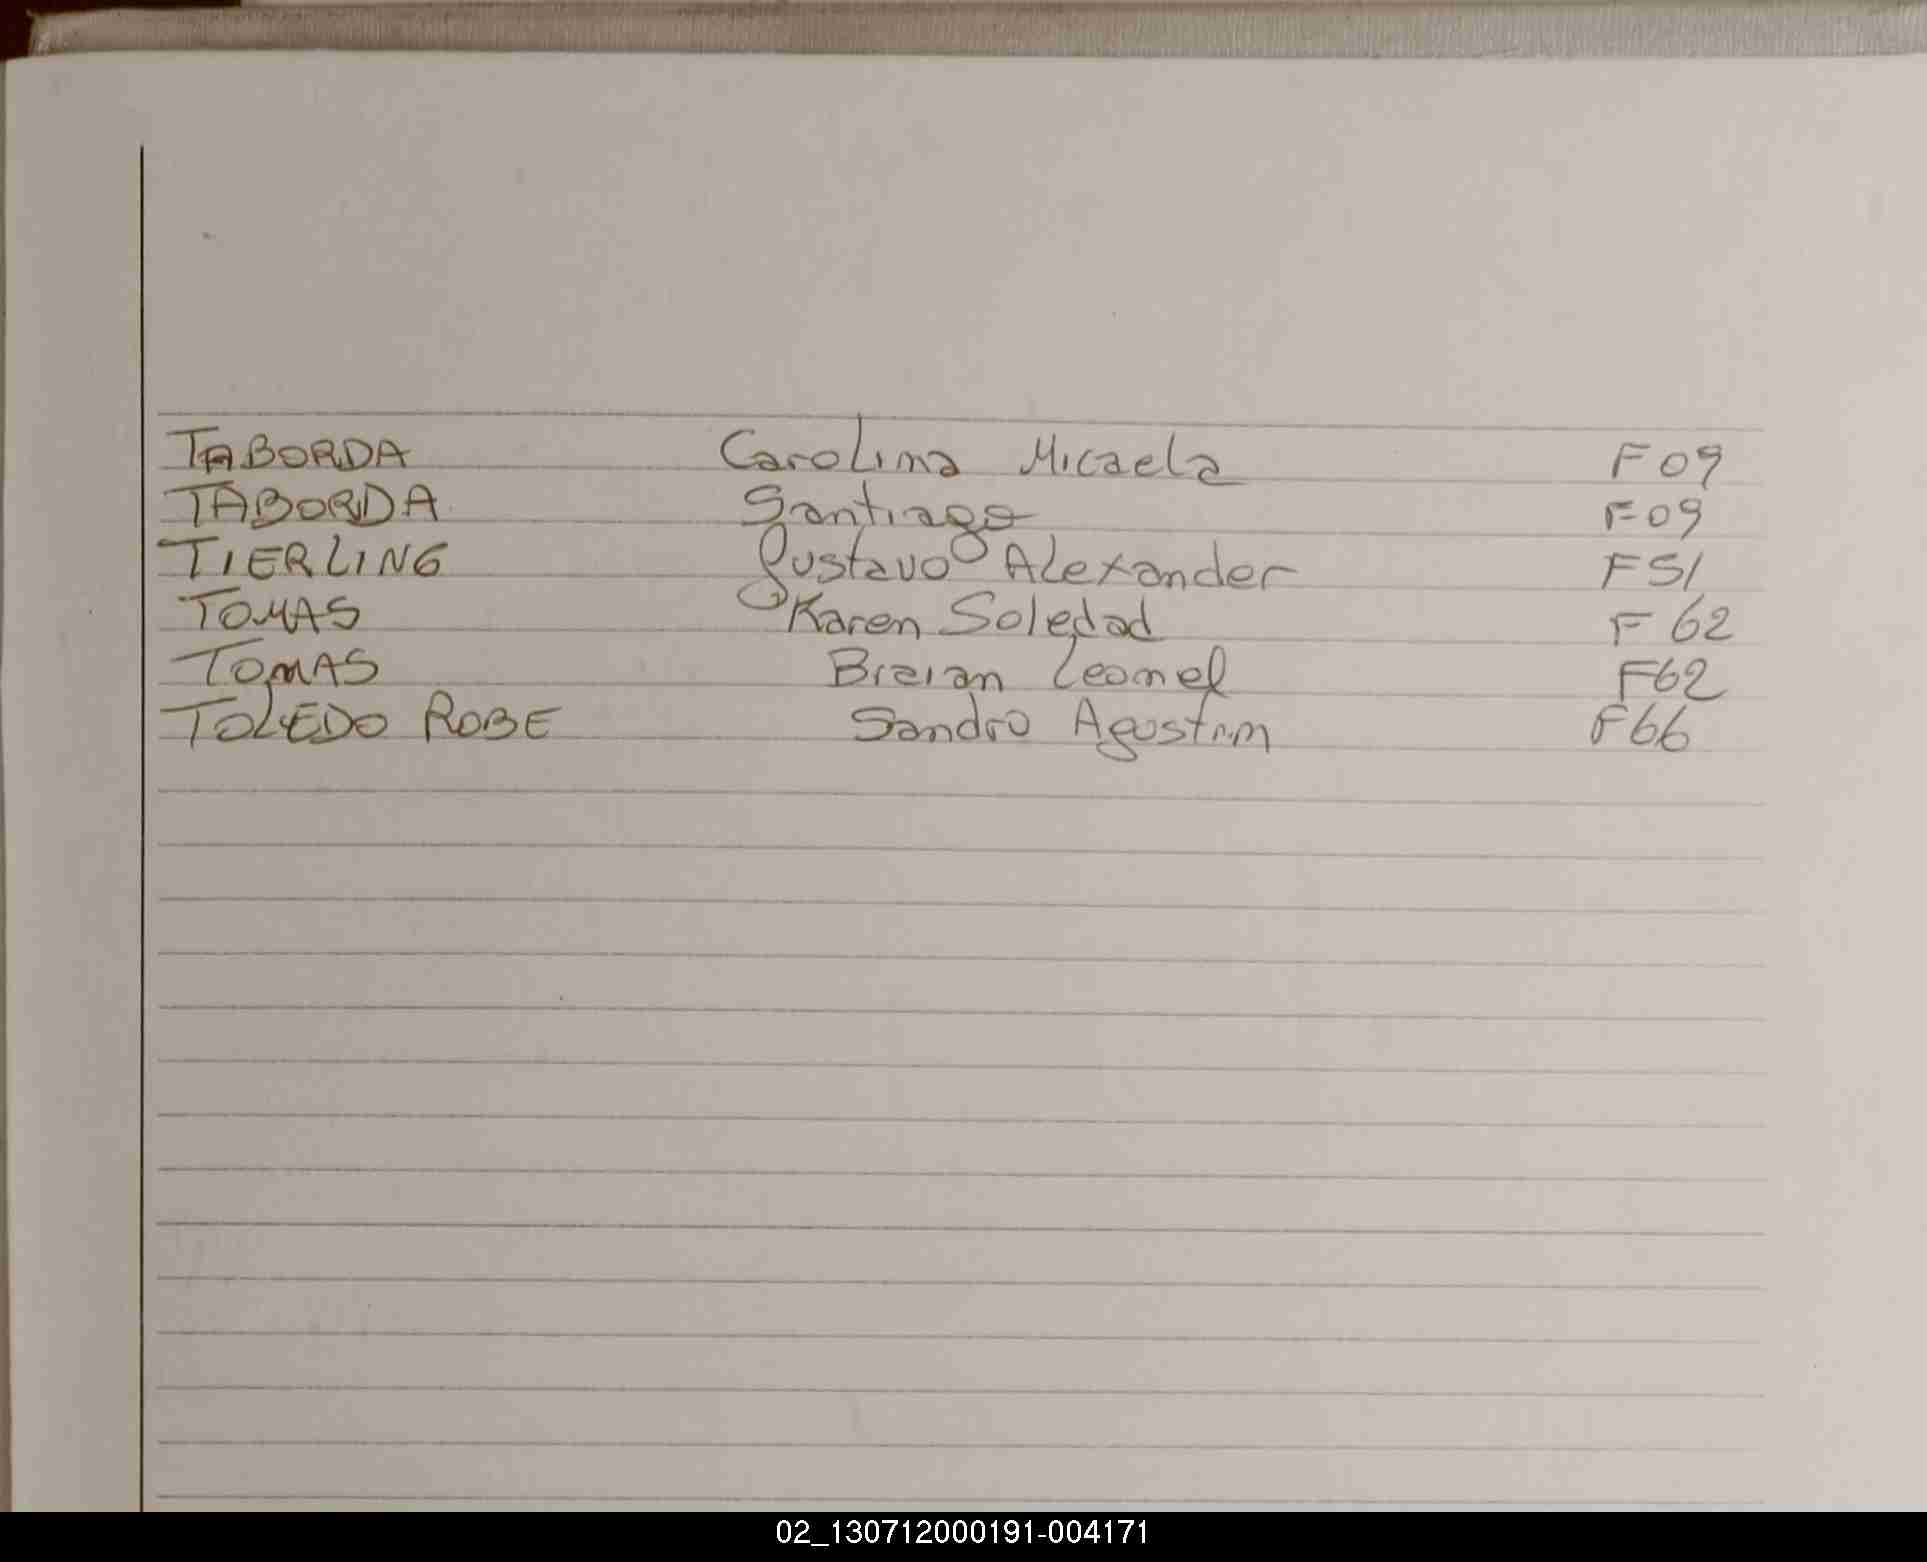 TABORDA Carolina Micaela F09
TABORDA Santiago F09
TIERLING Gustavo Alexander F51
TOMAS Karen Soledad F 62
TOMAS Braian Leonel F62
TOLEDO ROBE Sandro Agustin F66
02_130712000191-004171